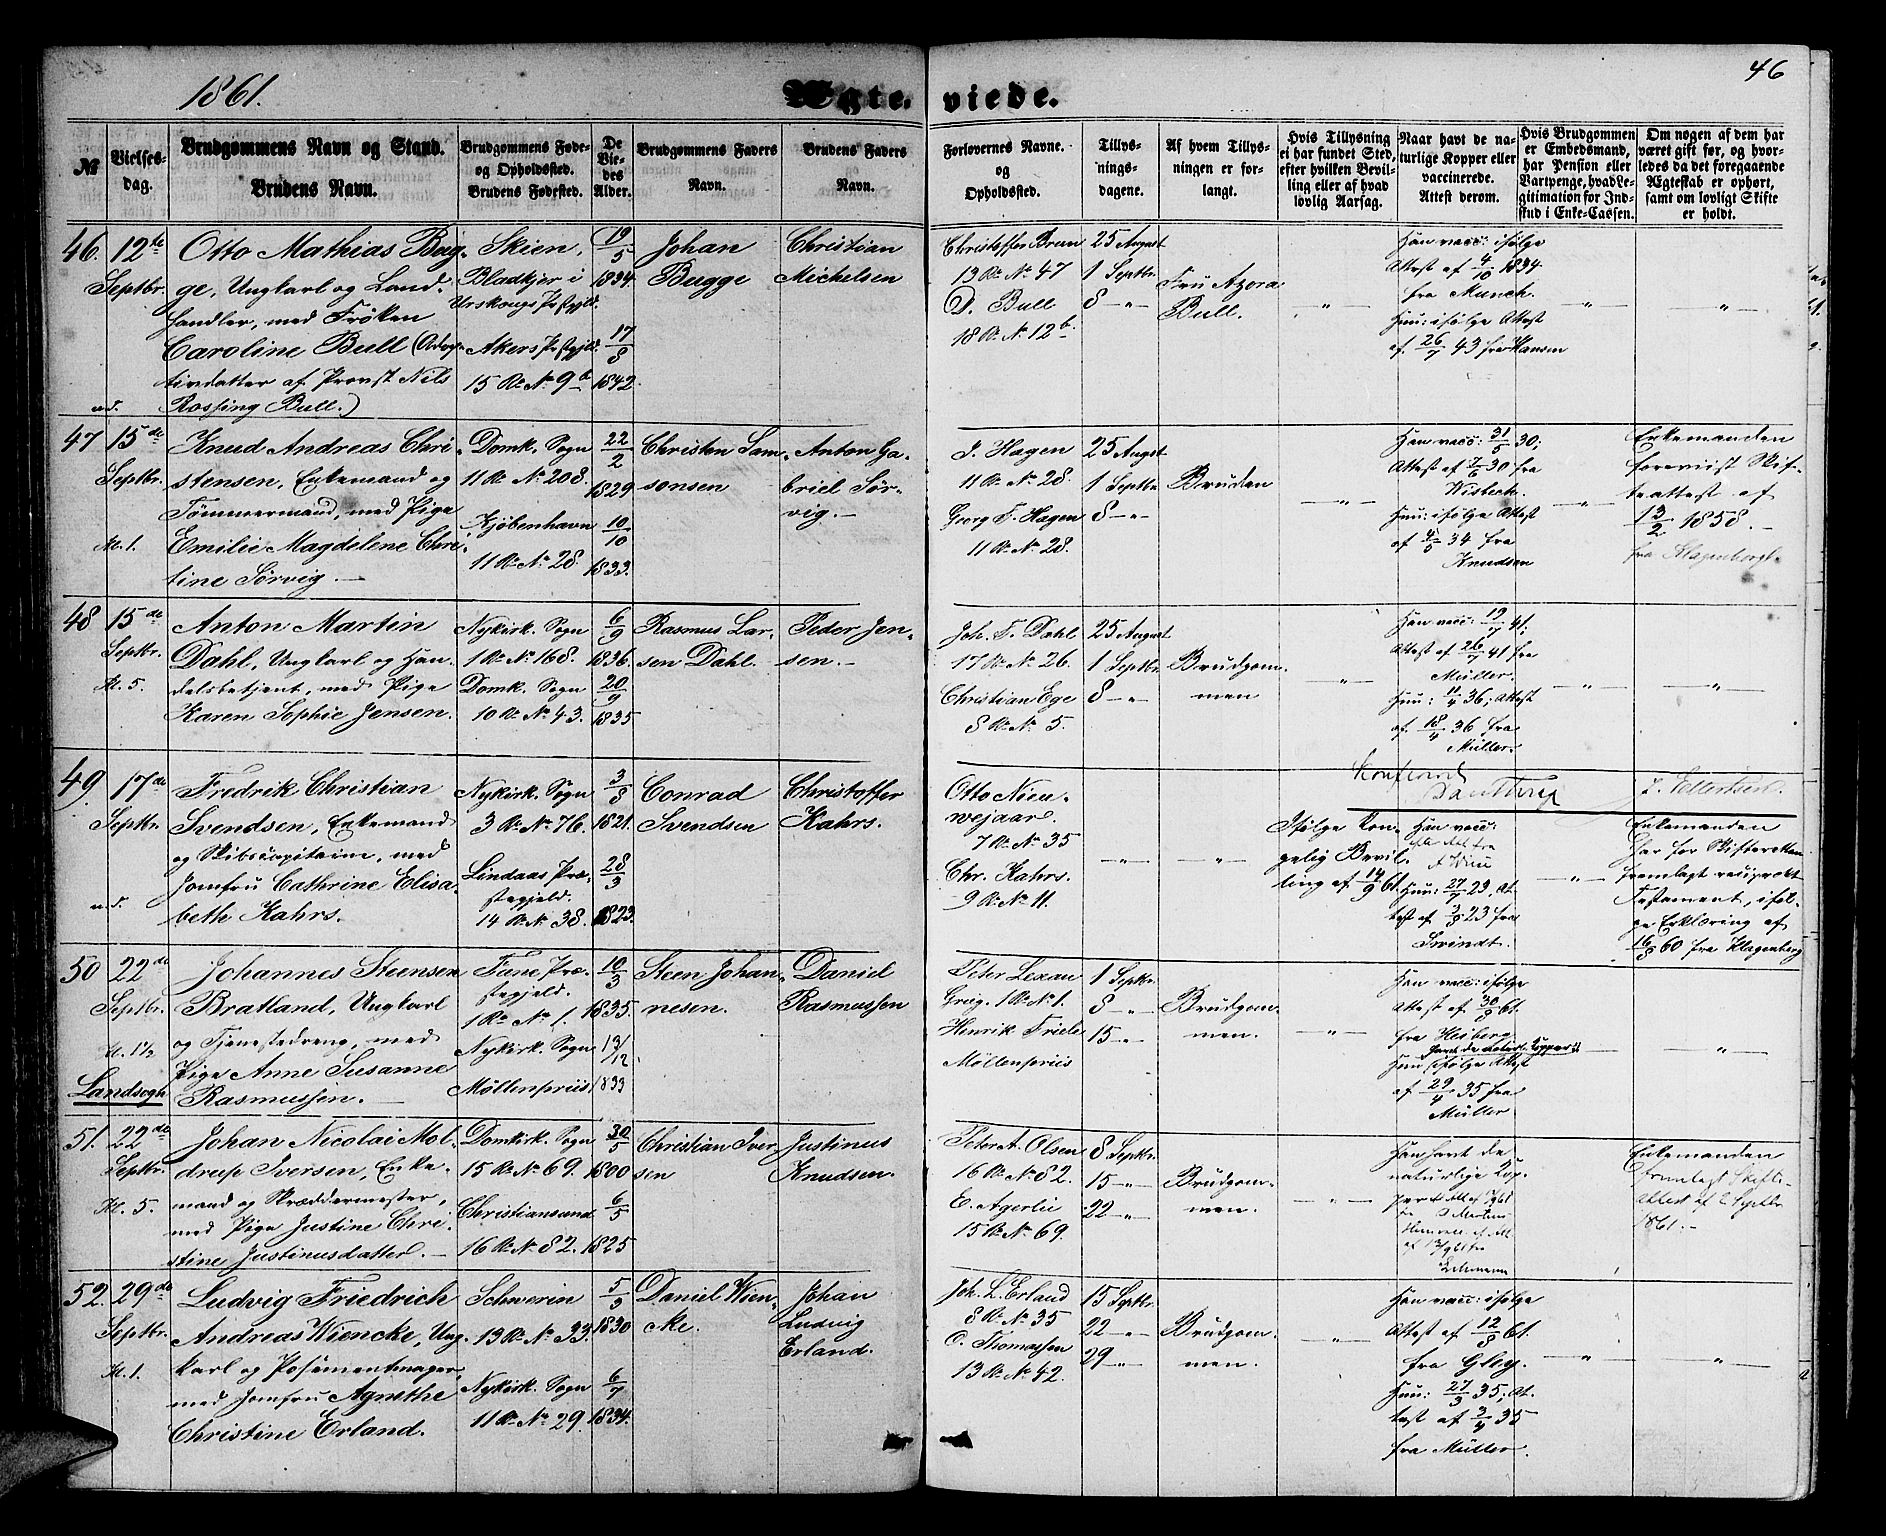 1861.
Ægte-
viede.
46
№
Vielses-
dag.
Brudgommens Navn og Stand.
Brudens Navn.
Brudgommens Føde-
og Opholdssted.
Brudens Fødested.
De
Vie-
des
Alder.
Brudgommens Faders
Navn.
Brudens Faders
Navn.
Forlovernes Navne.
og
Opholdssted.
Tillys-
nings-
dagene.
Af hvem Tillys-
ningen er for-
langt.
Hvis Tillysning
ei har fundet Sted,
efter hvilken Bevil-
ling eller af hvad
lovlig Aarsag.
Naar havt de na-
turlige Kopper eller
vaccinerede.
Attest derom.
Hvis Brudgommen
er Embedsmand,
har Pension eller
Vartpenge, hvad Le-
gitimation for Ind-
skud i Enke-Cassen.
Om nogen af dem har
været gift før, og hvor-
ledes da det foregaaende
Ægteskab er ophørt,
samt om lovligt Skifte
er holdt.
46. 12te
Septbr.
Otto Mathias Bug-
ge, Ungkarl og Land-
handler, med Frøken
Caroline Bull (Adop-
tivdatter af Provst Niels
Rossing Bull.)
Skien.
Bladkjer i
Urskougs Præstegjeld.
Akers Præstegjeld.
15 R. No 9 b
19/5
1834.
17/8
1842.
Johan
Bugge
Christian
Michelsen
Christoffer Brun
13 R. No 47
D. Bull
18 R. No 12 b.
25 August
1 Septbr.
8 -"-
Fru Azora
Bull.
-"-
Han vacc: ifølge
Attest af 4/10 1834
fra Munch.
Hun: ifølge Attest
af 26/7 43 fra Hansen
-"-
-"-
47 15de
Septbr.
Kl. 1.
Knud Andreas Chri-
stensen, Enkemand og
Tømmermand, med Pige
Emilie Magdelene Chri-
tine Sørvig.
Domk. Sogn
11 R. No 208.
Kjøbenhavn
11 R. No 28.
22/2
1829
10/10
1833.
Christen Sam-
sonsen
Anton Ga-
briel Sør-
vig.
J. Hagen
11 R. No 28.
Georg F. Hagen
11 R. No 28.
25 Augst
1 Septbr.
8 -"-
Bruden
-"-
Han vacc: 31/5 30;
Attest af 7/6 30 fra
Wisbech.
Hun: ifølge Attest
af 4/5 34 fra
Knudsen
-"-
Enkemanden
foreviist Skif-
teattest af
13/2 1858.
fra Klagenberg
48 15de
Septbr.
Kl. 5.
Anton Martin
Dahl, Ungkarl og Han-
delsbetjent, med Pige
Karen Sophie Jensen.
Nykirk. Sogn
1 R. No 168.
Domk. Sogn
10 R. No 43.
6/9
1836.
20/9
1835
Rasmus Lar-
sen Dahl.
Peder Jen-
sen.
Joh. F. Dahl
17 R. No 26.
Christian Ege
8 R. No 5.
25 August
1 Septbr.
8 -"-
Brudgom-
men
-"-
Han vacc: 19/7 41;
Attest af 26/7 41 fra
Müller.
Hun: 11/4 36; Attest
af 18/4 36 fra
Müller.
-"-
-"-
49. 17de
Septbr.
Fredrik Christian
Svendsen, Enkemand
og Skibscapitaine, med
Jomfru Cathrine Elisa-
beth Kahrs.
Nykirk. Sogn
3 R. No 76.
Lindaas Præ-
stegjeld.
14 R. No 38.
3/8
1821.
28/3
1823.
Conrad
Svendsen
Christoffer
Kahrs.
Otto Nien-
wejaar.
7 R. No 35
Chr. Kahrs.
9 R. No 11.
-"-
-"-
Ifølge Kon-
gelig Bevil-
ling af 14/9 61.
Han vacc:
Hun: 27/7 23, At-
test af 3/8 23 fra
Svindt.
-"-
Enkemanden
har for Skifteretten
fremlagt reciprokt
Testament, iføl-
ge Erklæring af
16/8 60 fra Klagenberg
50 22de
Septbr.
Kl. 1½
Landsogn
Johannes Steensen
Bratland, Ungkarl
og Tjenestedreng, med
Pige Anne Susanne
Rasmussen.
Fane Præ-
stegjeld.
1 R. No 1.
Nykirk. Sogn
Møllenpriis
10/3
1835.
13/12
1833
Steen Johan-
nesen.
Daniel
Rasmussen
Peter Lexau
Greg. 1 R. No 1.
Henrik Friele
Møllenpriis
1 Septbr.
8 -"-
15 -"-
Brudgom-
men.
-"-
Han vacc: ifølge
Attest af 30/8 61.
fra Heiberg
Hun ifølge Attest
af 29/4 35 fra
Müller
-"-
-"-
51. 22de
Septbr.
Kl. 5.
Johan Nicolai Mol-
drup Iversen, Enke-
mand og Skræddermester,
med Pige Justine Chri-
stine Justinusdatter.
Domkirk. Sogn
15 R. No 69.
Christiansund
16 R. No 82.
30/5
1800
6/5
1825
Christian Iver
sen
Justinus
Knudsen.
Peter A. Olsen
16 R. No 82.
E. Agerlie
15 R. No 69.
8 Septbr.
15 -"-
22 -"-
Brudgom-
men.
-"-
Han havt de
naturlige Kop-
per
Lehmann
Enkemanden
fremlagt Skifte-
attest af 2 Septbr
1861.
52. 29de
Septbr.
Kl. 1.
Ludvig Friedrich
Andreas Wiencke, Ung-
karl og Posementmager,
med Jomfru Agnethe
Christine Erland.
Schwerin
13 R. No 33.
Nykirk. Sogn
11 R. No 29.
5/3
1830
6/7
1834.
Daniel Wien-
cke.
Johan
Ludvig
Erland.
Joh. L. Erland
8 R. No 35
C. Thomassen
13 R. No 42.
15 Septbr.
22 -"-
29 -"-
Brudgom-
men.
-"-
Han vacc: ifølge
Attest af 12/8 61.
fra Gley.
Hun: 27/3 35; At-
test af 3/4 35
fra Müller.
-"-
-"-